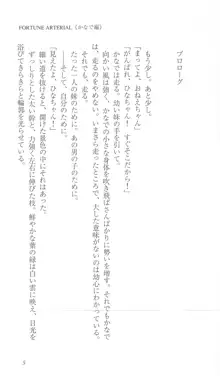 FORTUNE ARTERIAL《かなで編》
プロローグ
もう少し、あと少し。
「まってよ、おねえちゃん」
「がんばれ、ひなちゃん！　すぐそこだから！」
かなでは走る。幼い妹の手を引いて。
向かい風は強く、かなでの小さな身体を吹き飛ばさんばかりに勢いを増す。それでもかなで
は、走るのをやめない。いまさら走ったところで、大した意味がないのは幼心にわかっている。
それでも、走る。
たった一人の妹のために。あの男の子のために。
――そして、自分のために。
「がんばれ、ひなちゃん！」
細い道を抜けると、開けた景色の中にそれはあった。
ずっしりとした太い幹と、力強く左右に伸びた枝。鮮やかな葉の緑は白い雲に映え、日光を
浴びてきらきらと輪郭を光らせている。
5